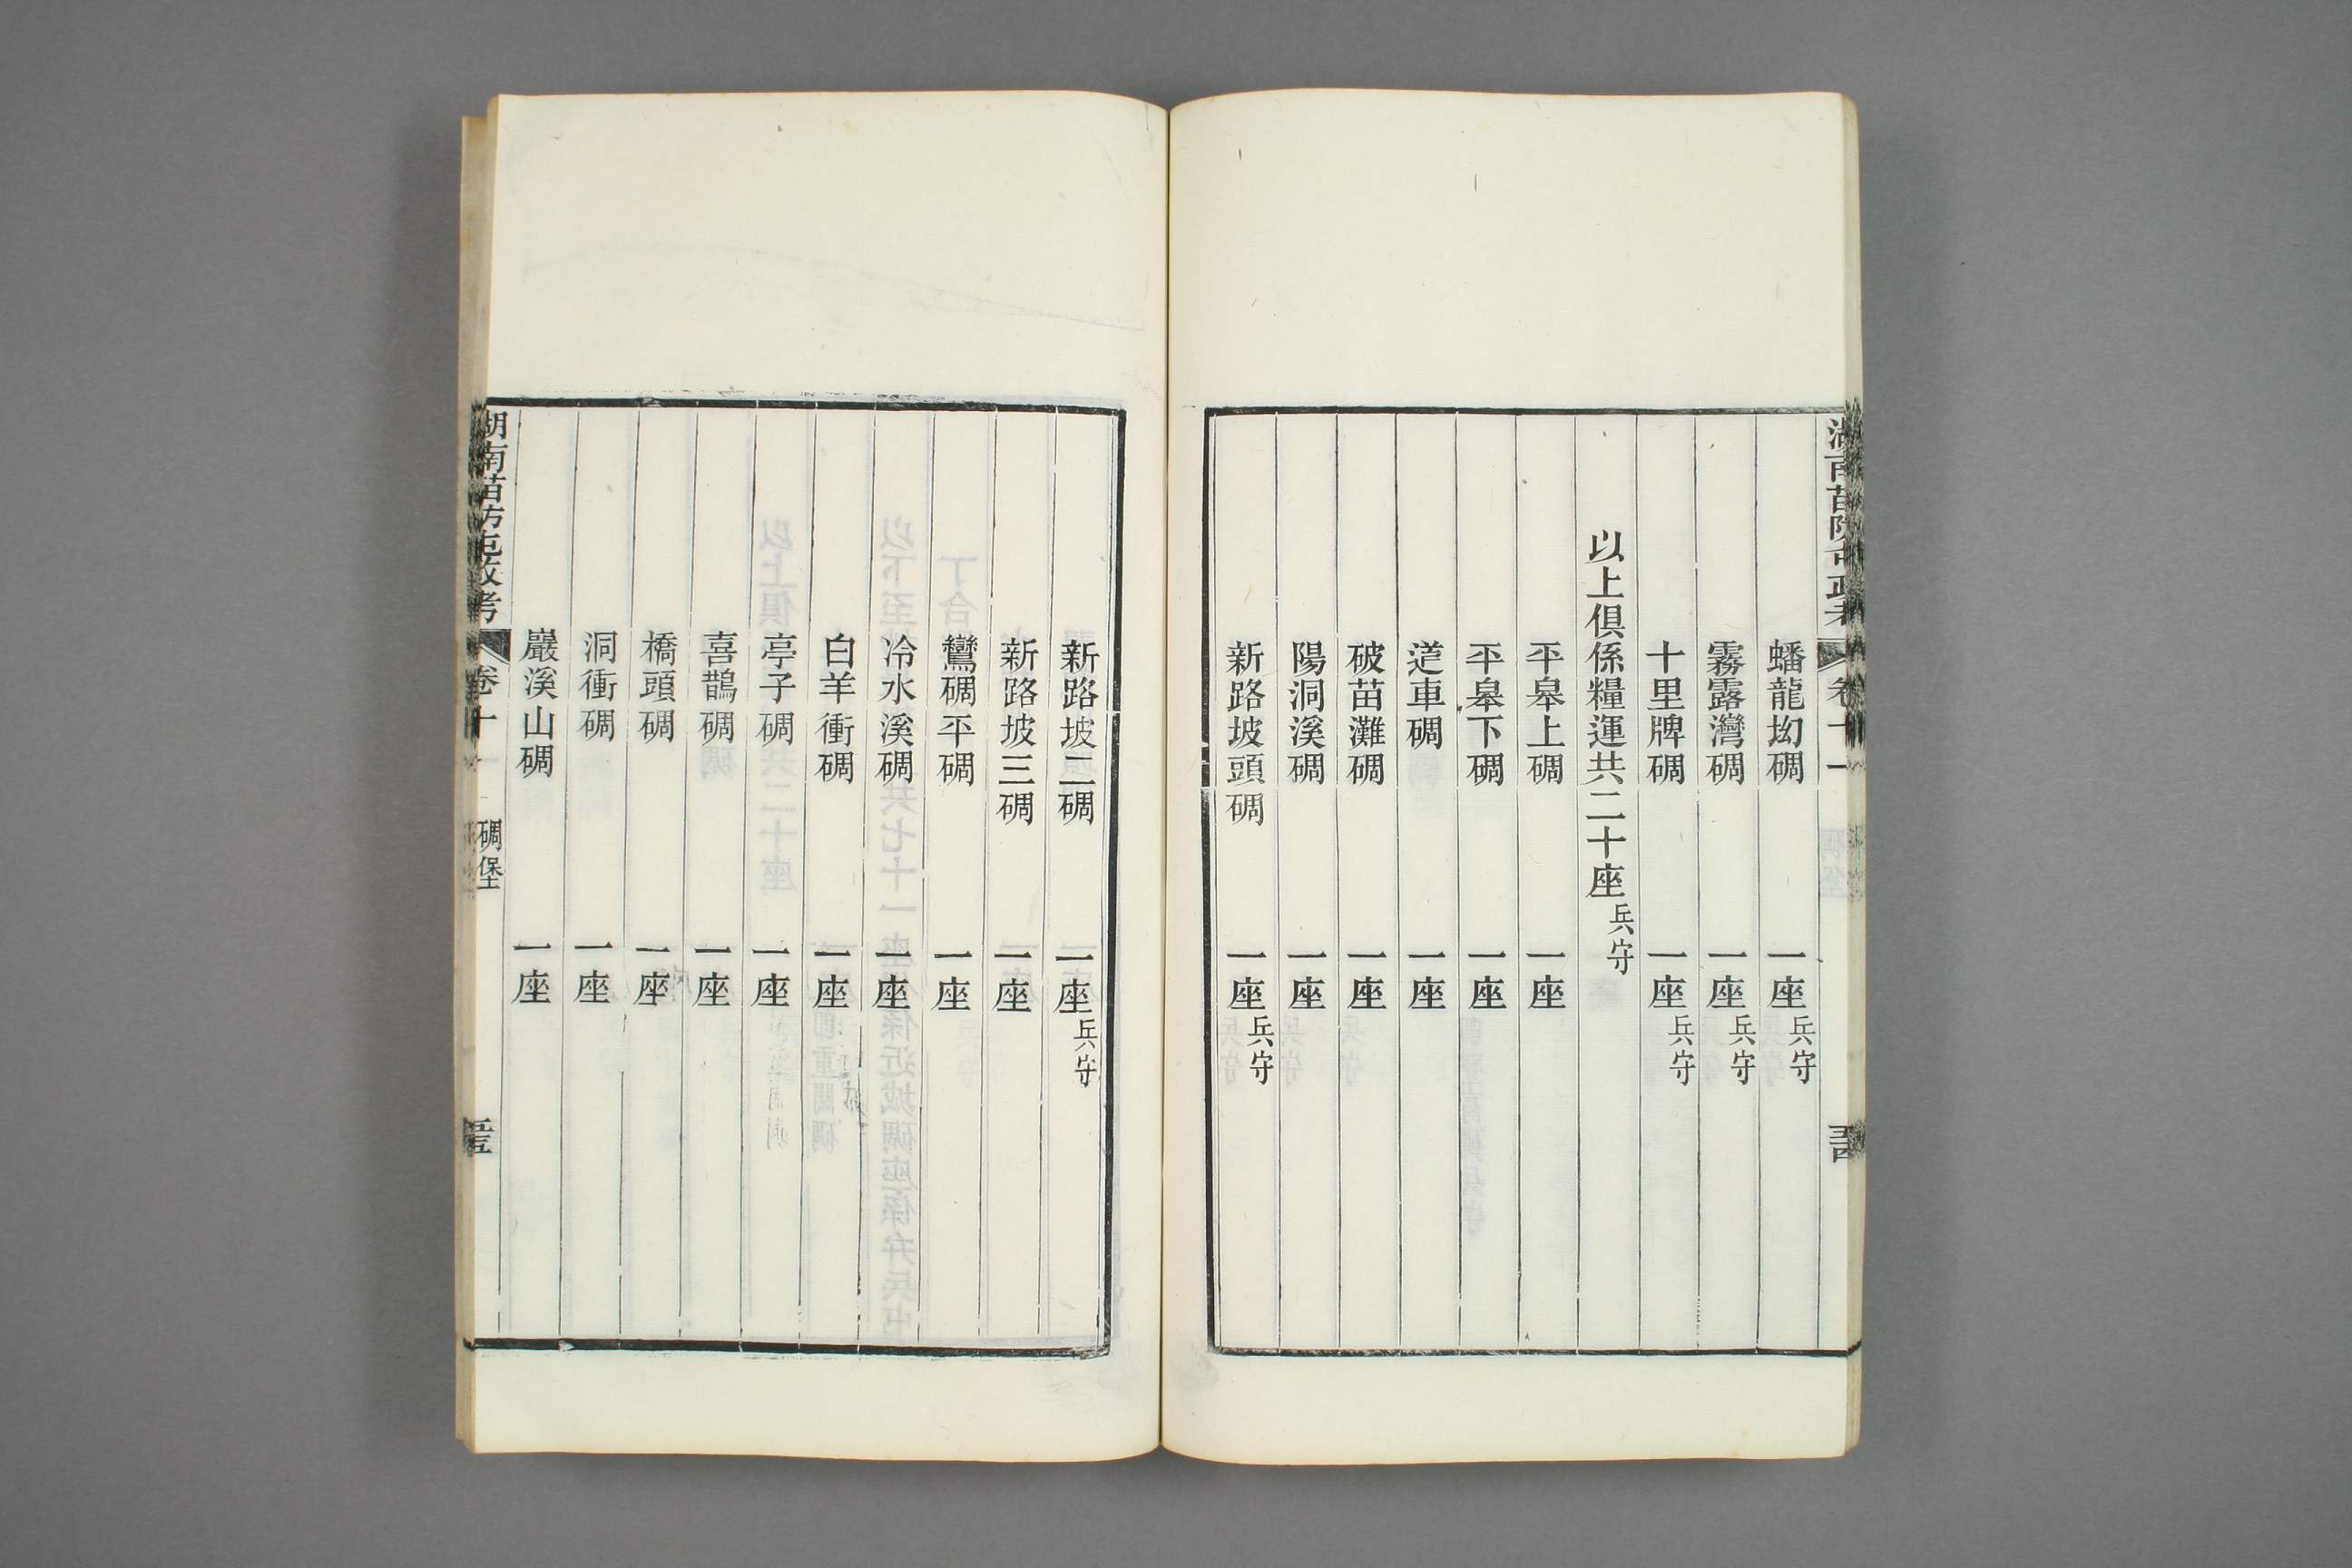 湖南苗防屯政考 卷十一
蟠龍坳碉 一座兵守
霧露灣碉 一座兵守
十里牌碉 一座兵守
以上俱係糧運共二十座兵守
平皋上碉 一座
平皋下碉 一座
道車碉 一座
破苗灘碉 一座
陽洞溪碉 一座
新路坡頭碉 一座兵守
新路坡二碉 一座兵守
新路坡三碉 一座
鸞碉平碉 一座
冷水溪碉 一座
白羊衝碉 一座
亭子碉 一座
喜鵲碉 一座
橋頭碉 一座
洞衝碉 一座
巖溪山碉 一座
湖南苗防屯政考 卷十 碉堡